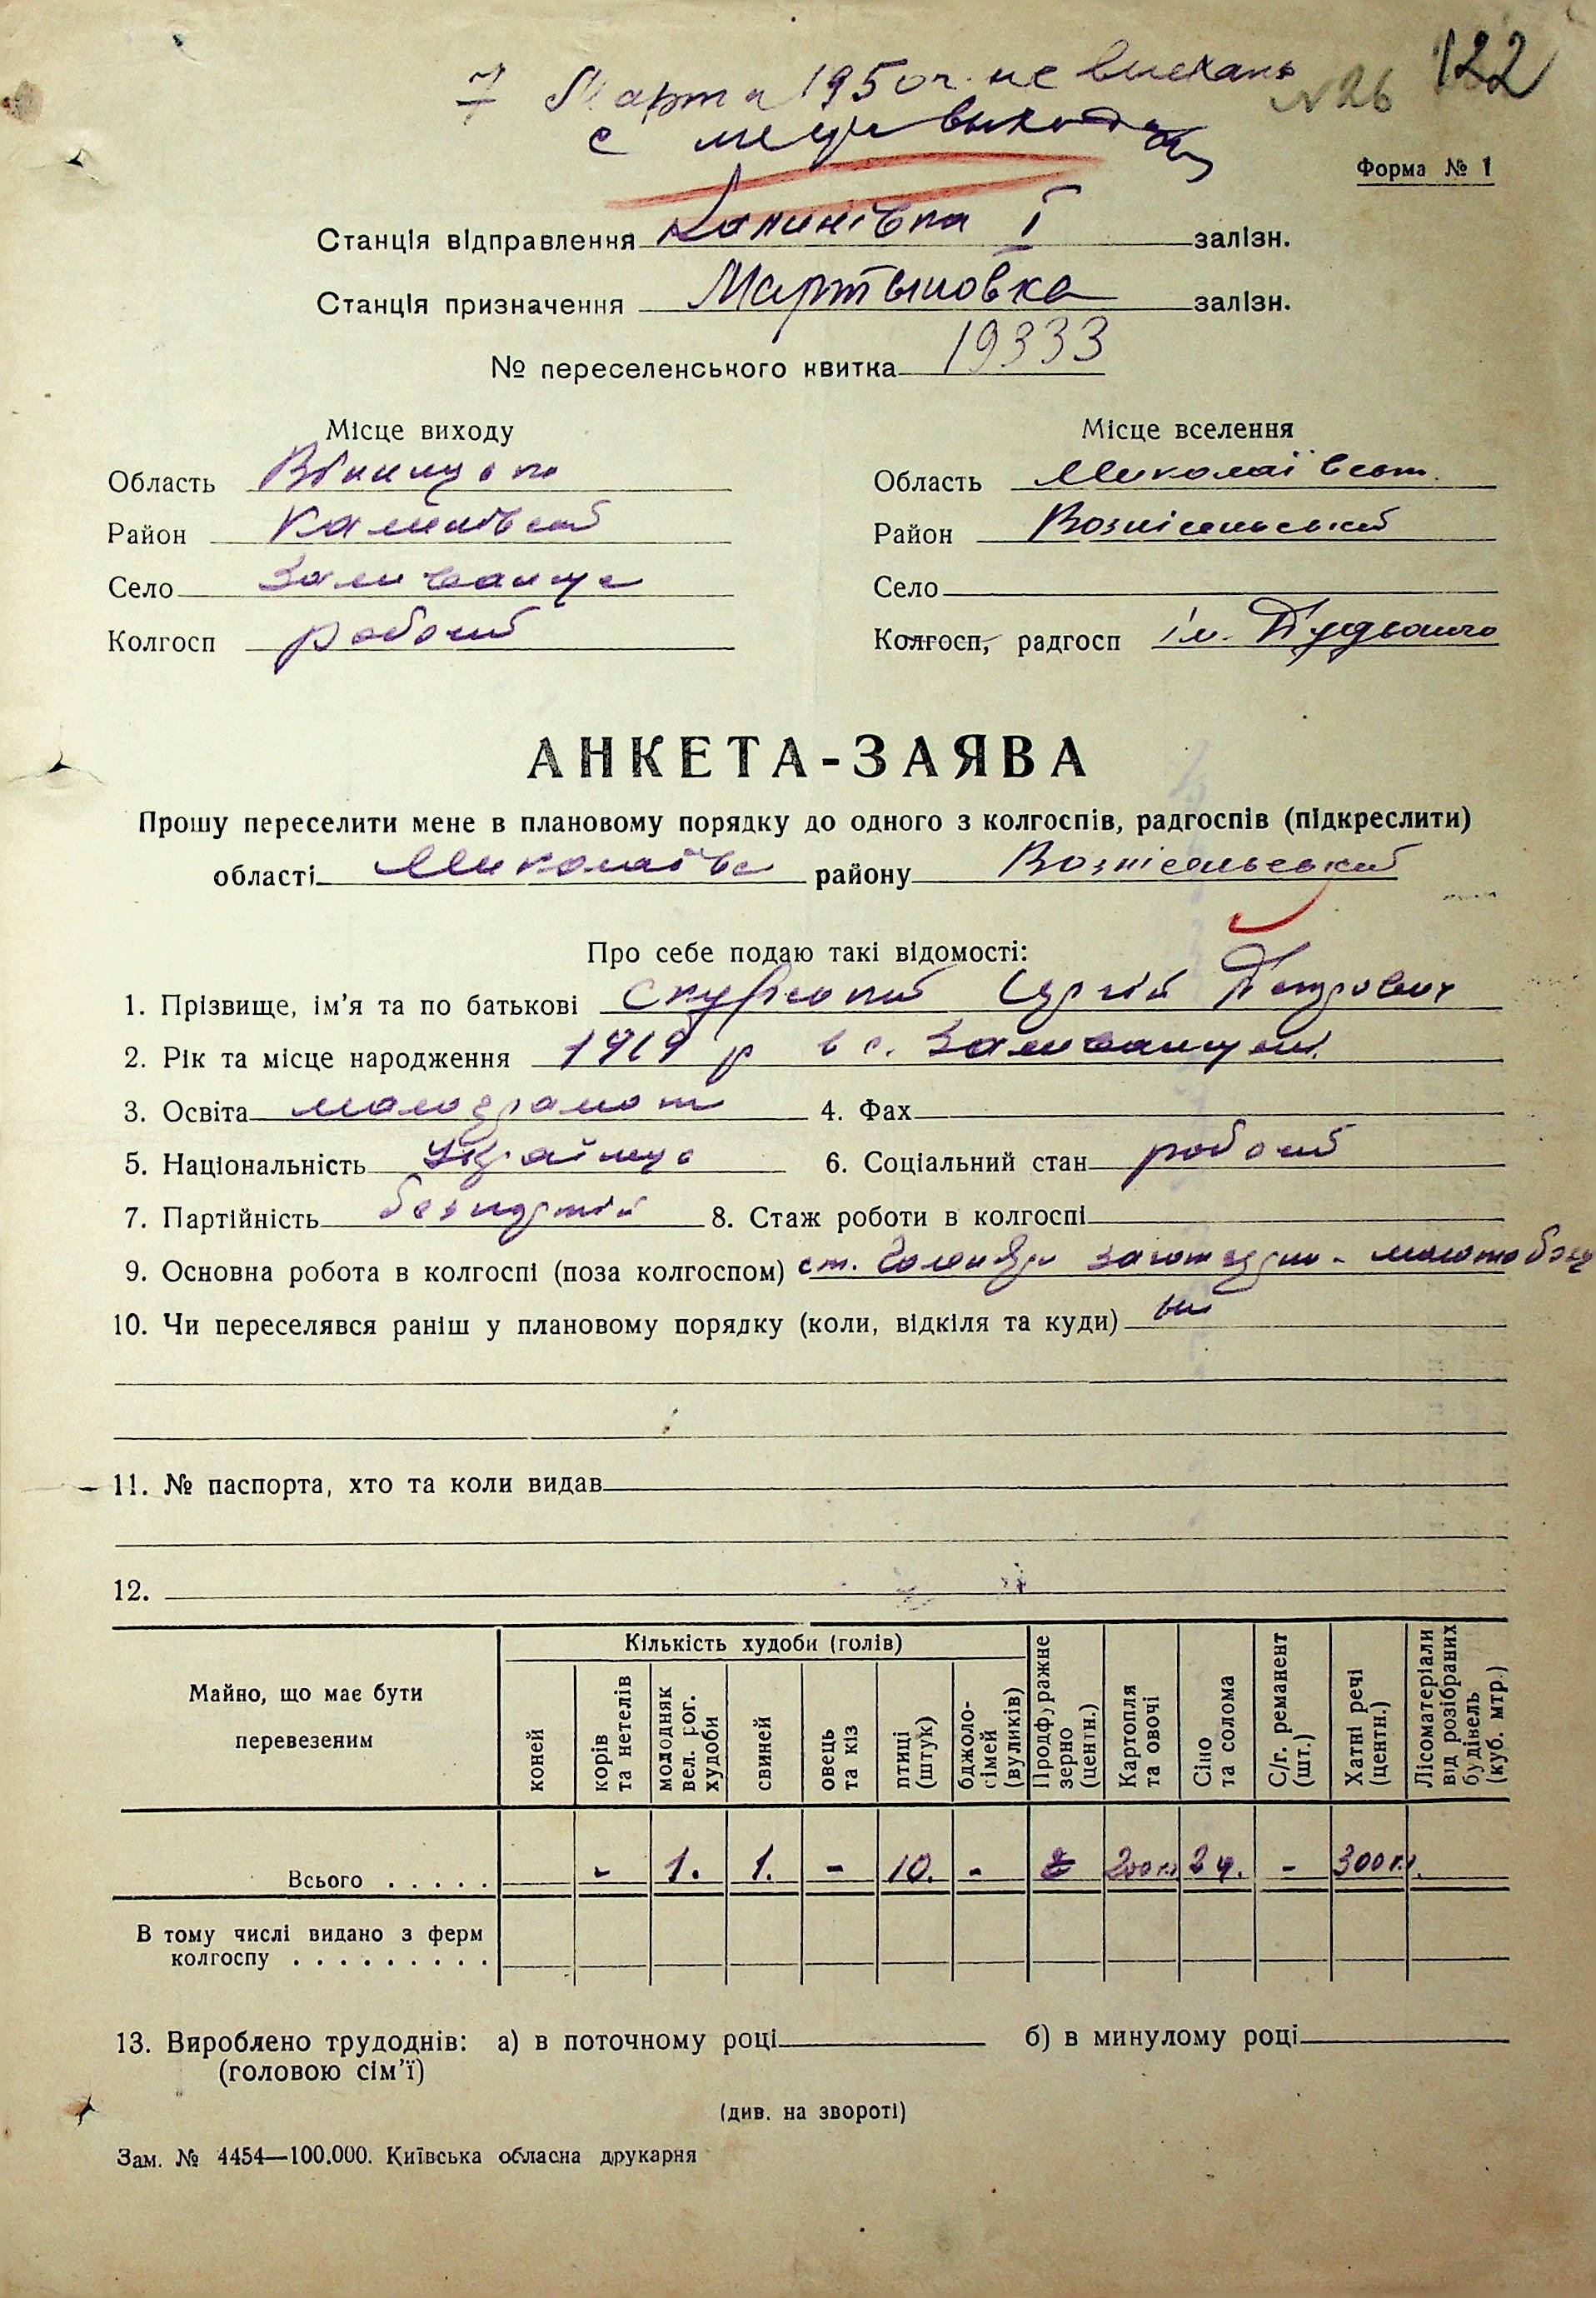 7 Марта 1950 г. не виехали
с места выхода
№ 26
122
Форма № 1
Станція відправлення Калинівка I залізн.
Станція призначення Мартыновка залізн.
№ переселенського квитка 19333
Місце виходу
Область Вінницька
Район Калинівський
Село Заливанще
Колгосп робочий
Місце вселення
Область Миколаївськ.
Район Вознісенський
Село
Колгосп, радгосп ім.
АНКЕТА-ЗАЯВА
Прошу переселити мене в плановому порядку до одного з колгоспів, радгоспів (підкреслити)
області Миколаївс району Вознісенський
Про себе подаю такі відомості:
1. Прізвище, ім'я та по батькові Сергій Петрович
2. Рік та місце народження 1919 р в с. Заливанщені
3. Освіта малограмот 4. Фах
5. Національність Українц 6. Соціальний стан робочий
7. Партійність безпартій 8. Стаж роботи в колгоспі
9. Основна робота в колгоспі (поза колгоспом) ст. молотобоец
10. Чи переселявся раніш у плановому порядку (коли, відкіля та куди) ні
11. № паспорта, хто та коли видав
12.
Майно, що має бути перевезеним
Кількість худоби (голів)
коней
корів та нетелів
молодняк вел. рог. худоби
свиней
овець та кіз
птиці (штук)
бджоло-сімей (вуликів)
Продфуражне зерно (центн.)
Картопля та овочі
Сіно та солома
С/г. реманент (шт.)
Хатні речі (центн.)
Лісоматеріали від розібраних будінель (куб. мтр.)
Всього . . . . . - 1. 1. - 10. - 200 кг 2 ц. - 300 кг.
В тому числі видано з ферм
колгоспу . . . . . . . . .
13. Вироблено трудоднів: а) в поточному році б) в минулому році
(головою сім'ї)
(див. на звороті)
Зам. № 4454—100.000. Київська обласна друкарня